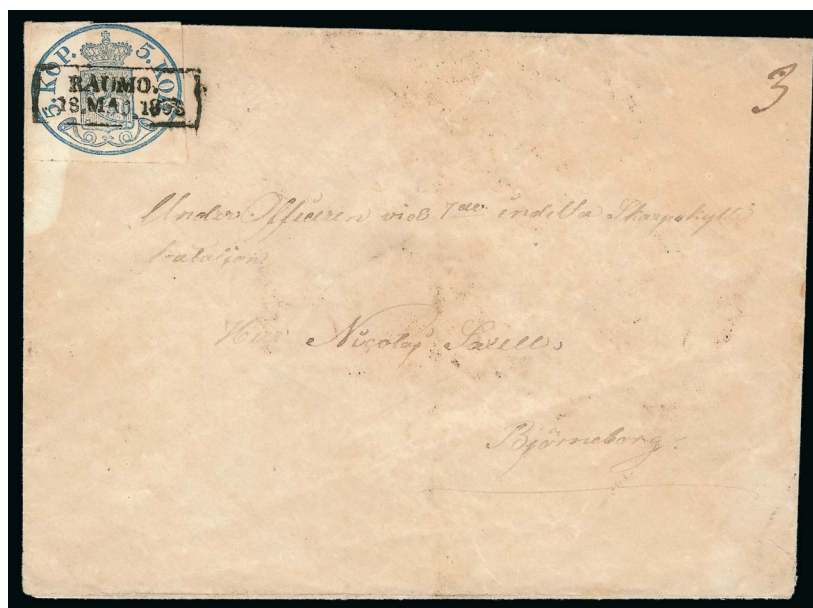 5. KOP. 5. KOP.
RAUMO.
18. MAJ 185
3
Under Officeren vid 7de indelta Skarpskytte
bataljon
Nicolaj
Björneborg.